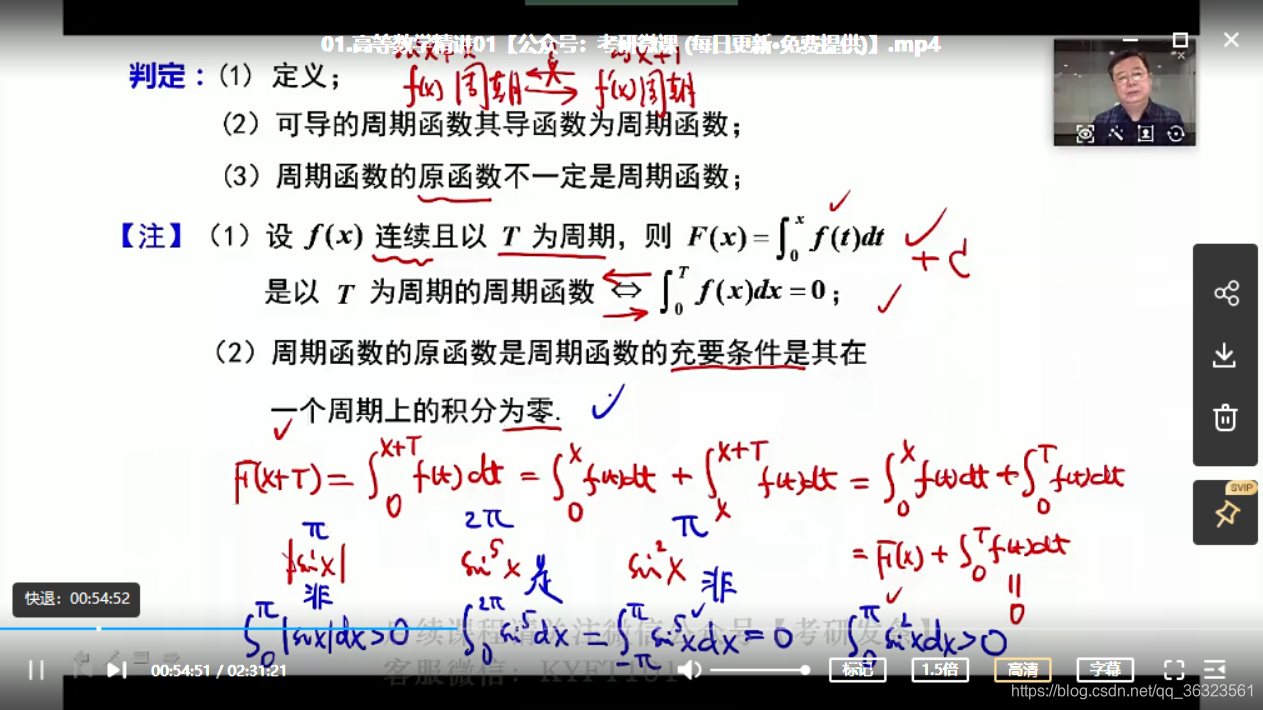 01.高等数学精讲01【公众号：考研微课 (每日更新•免费提供)】.mp4
判定：(1) 定义；
f(x) 周期 f'(x) 周期
(2) 可导的周期函数其导函数为周期函数；
(3) 周期函数的原函数不一定是周期函数；
【注】(1) 设 f(x) 连续且以 T 为周期，则 F(x) = ∫₀ˣ f(t)dt + C
是以 T 为周期的周期函数 ⇔ ∫₀ᵀ f(x)dx = 0；
(2) 周期函数的原函数是周期函数的充要条件是其在
一个周期上的积分为零.
F(x+T) = ∫₀ˣ⁺ᵀ f(t)dt = ∫₀ˣ f(t)dt + ∫ₓˣ⁺ᵀ f(t)dt = ∫₀ˣ f(t)dt + ∫₀ᵀ f(t)dt
π 2π π
|sinx| sin⁵x 是 sin²x 非 = F(x) + ∫₀ᵀ f(t)dt
非 || 0
SVIP
快退：00:54:52
∫₀^π |sinx|dx>0 ∫₀^2π sin⁵dx = ∫₋π^π sin⁵xdx = 0 ∫₀^π sin²xdx>0
续课程请关注微信公众号【考研发条】
客服微信：
00:54:51 / 02:31:21 标记 1.5倍 高清 字幕
https://blog.csdn.net/qq_36323561